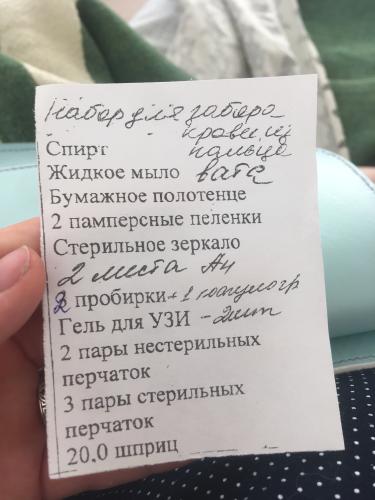 Набор для забора
крови из
Спирт пальца
Жидкое мыло вата
Бумажное полотенце
2 памперсные пеленки
Стерильное зеркало
2 листа А4
2 пробирки + 1 коагулогр
Гель для УЗИ - 2шт
2 пары нестерильных
перчаток
3 пары стерильных
перчаток
20,0 шприц